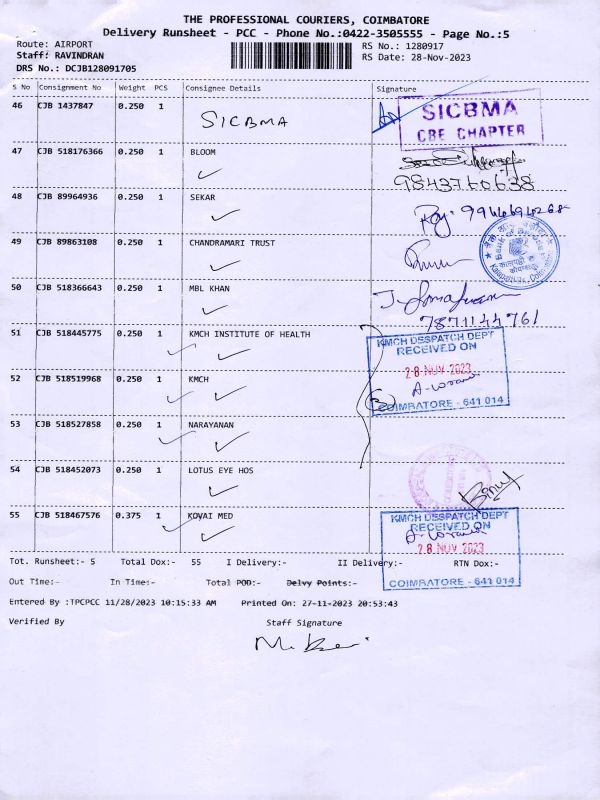 THE PROFESSIONAL COURIERS, COIMBATORE
Delivery Runsheet - PCC - Phone No.:0422-3505555 - Page No.:5
Route: AIRPORT
Staff: RAVINDRAN
DRS No.: DCJB128091705
RS No.: 1280917
RS Date: 28-Nov-2023
S No Consignment No Weight PCS Consignee Details Signature
46 CJB 1437847 0.250 1 SICBMA
SICBMA
CBE CHAPTER
47 CJB 518176366 0.250 1 BLOOM
9843760638
48 CJB 89964936 0.250 1 SEKAR
49 CJB 89863108 0.250 1 CHANDRAMARI TRUST
50 CJB 518366643 0.250 1 MBL KHAN
7871144761
51 CJB 518445775 0.250 1 KMCH INSTITUTE OF HEALTH
KMCH DESPATCH DEPT
RECEIVED ON
28 NOV 2023
COIMBATORE - 641 014
52 CJB 518519968 0.250 1 KMCH
53 CJB 518527858 0.250 1 NARAYANAN
54 CJB 518452073 0.250 1 LOTUS EYE HOS
55 CJB 518467576 0.375 1 KOVAI MED
KMCH DESPATCH DEPT
RECEIVED ON
28 NOV 2023
COIMBATORE - 641 014
Tot. Runsheet:- 5 Total Dox:- 55 I Delivery:- II Delivery:- RTN Dox:-
Out Time:- In Time:- Total POD:- Delvy Points:-
Entered By :TPCPCC 11/28/2023 10:15:33 AM Printed On: 27-11-2023 20:53:43
Verified By Staff Signature